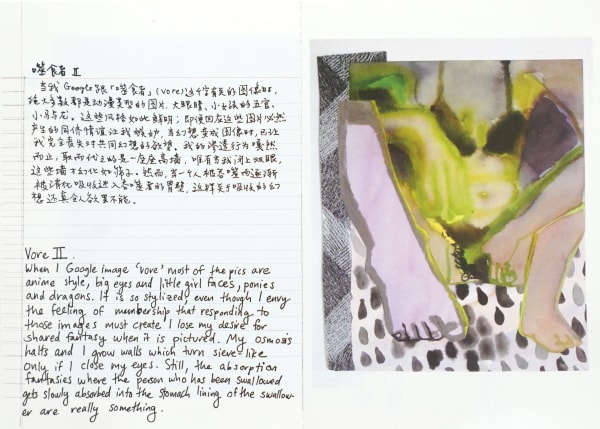 噬食者 II
当我 Google 跟「噬食者」(vore) 这个字有关的图像时,
绝大多数都是动漫类型的图片,大眼睛、小女孩的五官、
小马与龙。这些风格如此鲜明;即便因在这些图片必然
产生的同侪情谊让我嫉妒,当幻想变成图像时,已让
我完全丧失对共同幻想的欲望。我的渗透行为嘎然
而止,取而代之的是一座座高墙,唯有当我闭上双眼,
这些墙才幻化如筛子。然而,当一个人被吞噬而逐渐
被消化吸收进入吞噬者的胃壁,这样关于吸收的幻
想还真令人欲罢不能。
Vore II.
When I Google image 'vore' most of the pics are
anime style, big eyes and little girl faces, ponies
and dragons. It is so stylized, even though I envy
the feeling of membership that responding to
those images must create I lose my desire for
shared fantasy when it is pictured. My osmosis
halts and I grow walls which turn sieve like
only if I close my eyes. Still, the absorption
fantasies where the person who has been swallowed
gets slowly absorbed into the stomach lining of the swallow-
er are really something.